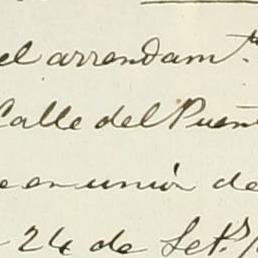 el arrendam.to
Calle del Puen
e en unión de
24 de Set.